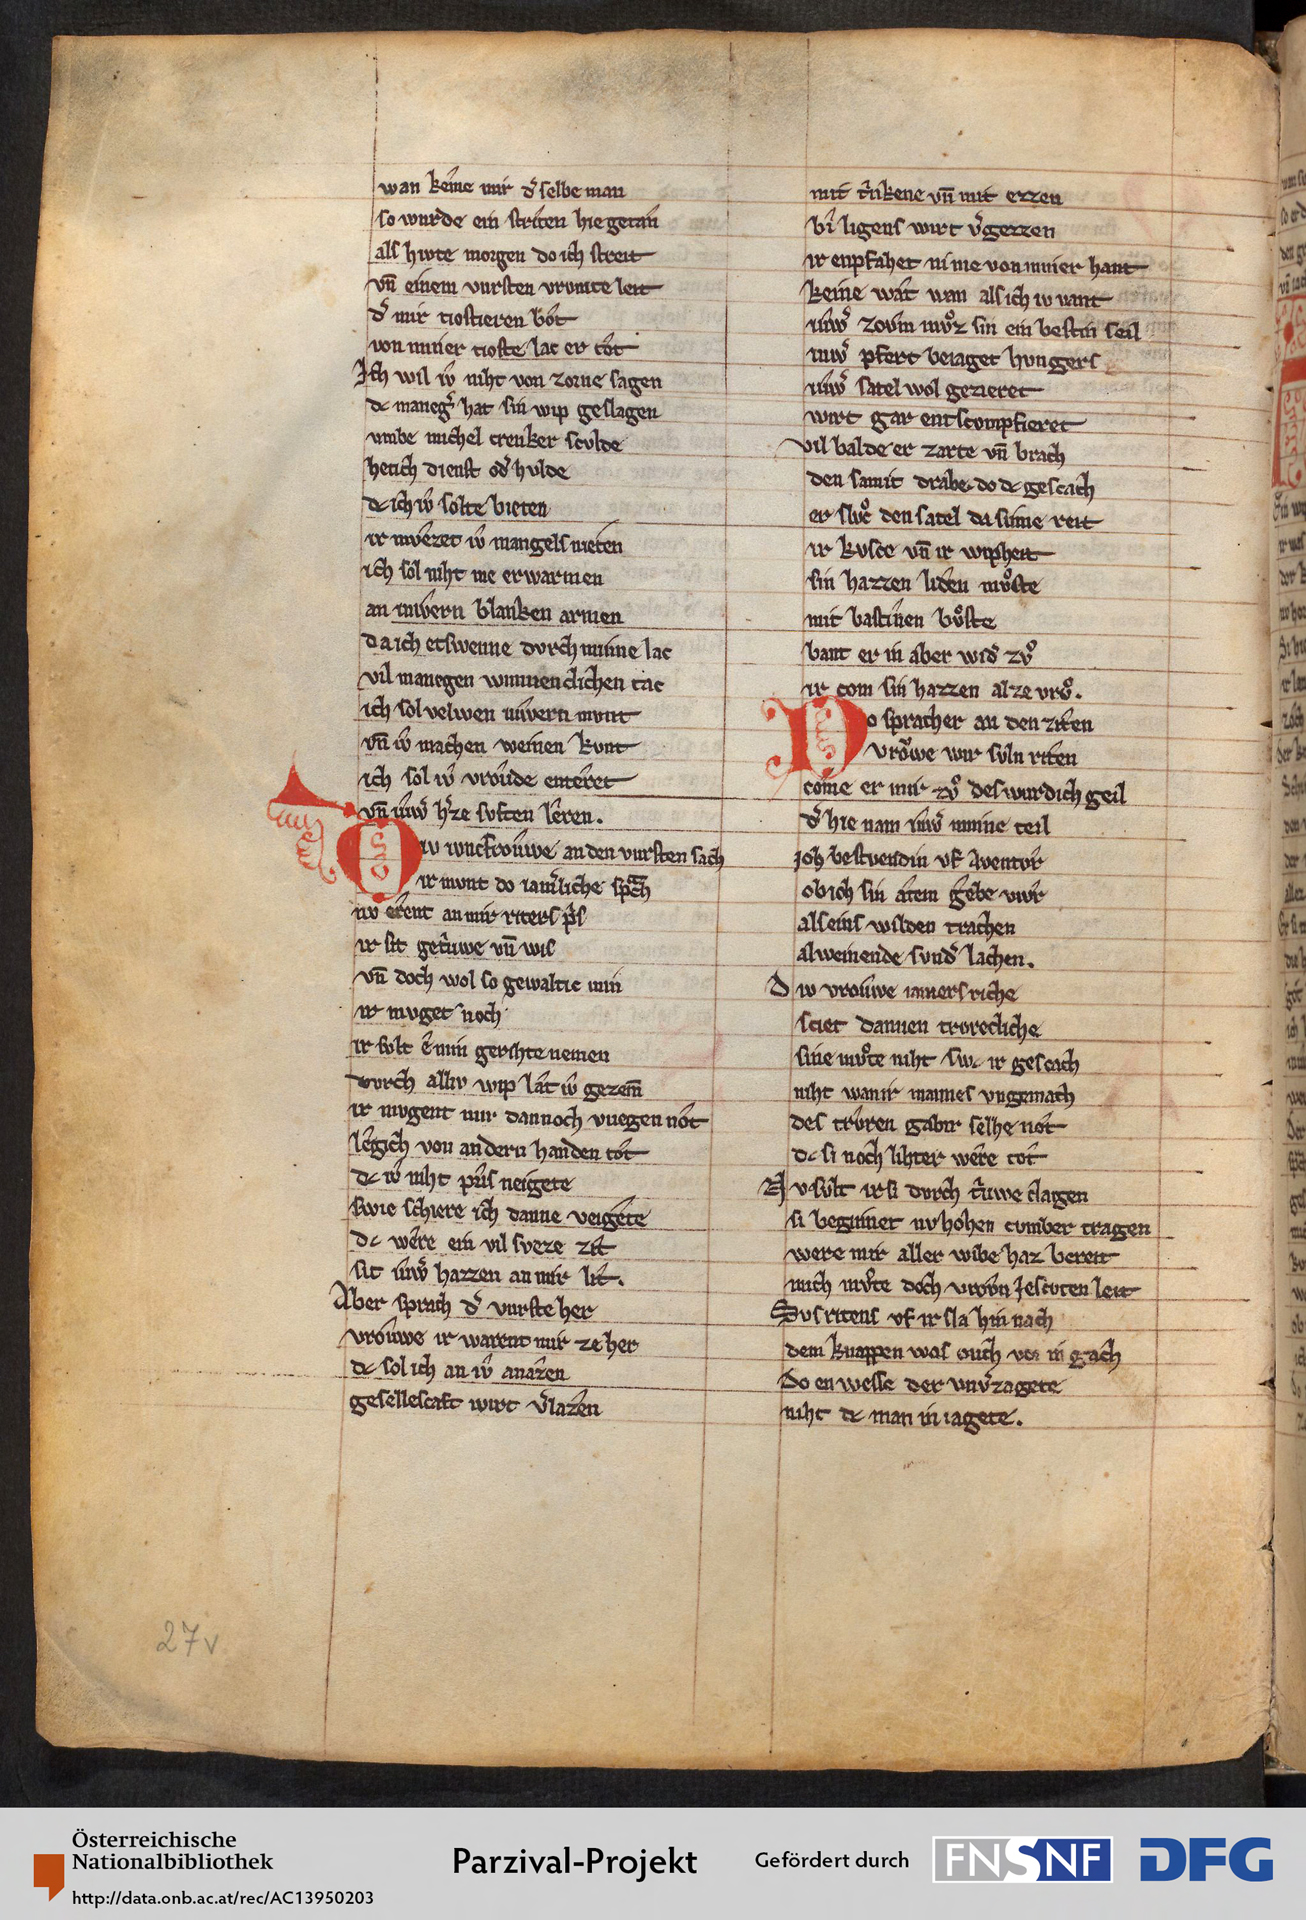 wan keme mir d͛ selbe man
so wurde ein striten hie getan
als hivte morgen do ich streit
vn̄ einem vursten vrumte leit
d͛ mir tiostieren bot
von miner tioste lac er tot
Ich wil iv niht von zorne sagen
dc maneg͛ hat sin wip geslagen
vmbe michel crenker scvlde
het ich dienst od͛ hvlde
dc ich iv solte bieten
ir mvezet iv mangels nieten
ich sol niht me erwarmen
an iwern blanken armen
da ich etswenne dvrch minne lac
vil manegen wunnenclichen tac
ich sol velwen iwern mvnt
vn̄ iv machen weinen kvnt
ich sol iv vrovde enteret
vn̄ iuw͛ h͛ze svften leren.
Div iuncfrouwe an den vursten sach
ir mvnt do iam͛liche sprach
nv erent an mir riters p͛s
ir sit getruwe vn̄ wis
vn̄ doch wol so gewaltic min
ir mvget noch
ir svlt e min gerihte nemen
dvrch alliv wip lat iv gezem̄
ir mvgent mir dannoch vuegen not
leg ich von andern handen tot
dc iv niht pris neigete
swie schiere ich danne veigete
dc were ein vil sveze zit
sit iuw͛ hazzen an mir lit.
Aber sprach d͛ vurste her
vrouwe ir warent mir ze her
dc sol ich an iv anazen
gesellescaft wirt v͛lazen
mit trikene vn̄ mit ezzen
bi ligens wirt v͛gezzen
ir enpfahet nime von miner hant
keine wat wan als ich iv vant
iuw͛ zovm mvͦz sin ein bestin seil
iuw͛ pfert beiaget hvngers
iuw͛ satel wol gezieret
wirt gar entscompfieret
vil balde er zarte vn̄ brach
den samit drabe. do dc gescach
er slvͦc den satel da si inne reit
ir kvsce vn̄ ir wipheit
sin hazzen liden mvͦste
mit bastinen bvͦste
bant er in aber wid͛ zvͦ
ir com sin hazzen al ze vrvͦ.
Do sprach er an den ziten
vrowe wir svln riten
come er mir zvͦ des wurd ich geil
d͛ hie nam iuw͛ minne teil
Joh bestvend in vf Aventvr
ob ich sin atem gebe vivr
als eins wilden trachen
al weinende svnd͛ lachen.
Div vrouwe iamers riche
sciet dannen trorecliche
sine mvͦte niht swc ir gescach
niht wan ir mannes vngemach
des trvren gab ir selhe not
dc si noch lihter were tot
Nv svlt ir si dvrch truwe clagen
si beginnet nv hohen cvmber tragen
were mir aller wibe haz bereit
mich mvͦte doch vrovn Jescvten leit
Svs ritens vf ir sla hin nach
dem knappen was ouch vor in gach
do en wesse der vnv͛zagete
niht dc man in iagete.
27v
Österreichische
Nationalbibliothek
http://data.onb.ac.at/rec/AC13950203
Parzival-Projekt
Gefördert durch
FNSNF
DFG